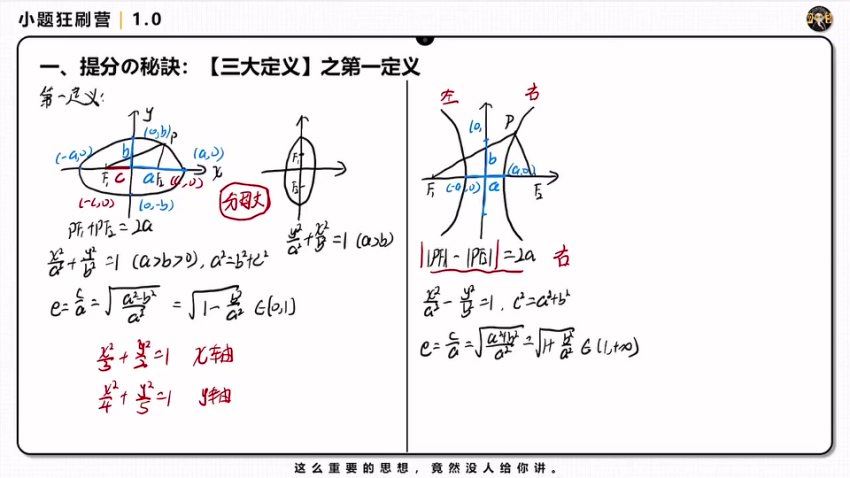 小题狂刷营 | 1.0
一、提分の秘訣：【三大定义】之第一定义
第一定义:
y
(0,b) P
(-a,0) b (a,0) x
F₁ c a F₂ (c,0)
(-c,0) (0,-b)
F₁
F₂
分母大
PF₁+PF₂=2a
x²/a²+y²/b²=1 (a>b>0), a²=b²+c²
y²/a²+x²/b²=1 (a>b)
e=c/a=√((a²-b²)/a²)=√(1-b²/a²)∈(0,1)
x²/3+y²/2=1 x轴
x²/4+y²/5=1 y轴
左 右
(0, P
b
F₁ (-a,0) a (a,0) F₂
||PF₁|-|PF₂||=2a 右
x²/a²-y²/b²=1, c²=a²+b²
e=c/a=√((a²+b²)/a²)=√(1+b²/a²)∈(1,+∞)
这么重要的思想，竟然没人给你讲。